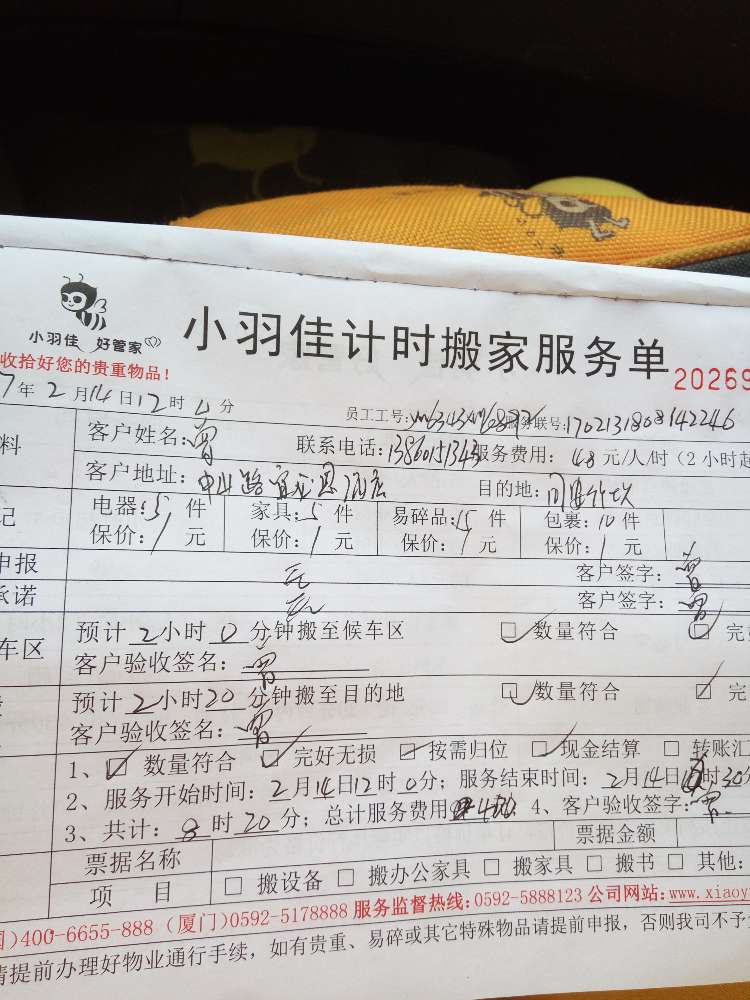 小羽佳 好管家
小羽佳计时搬家服务单
收拾好您的贵重物品！
20269
7年2月14日12时 分
员工工号： 服务联号：
料
客户姓名：曾 联系电话：13860151343 服务费用：48元/人/时（2小时起
客户地址：中山路宜必思酒店 目的地：
记
电器：5件 家具：5件 易碎品：15件 包裹：10件
保价：/元 保价：/元 保价：/元 保价：/元
申报 无 客户签字：曾
承诺 无 客户签字：曾
车区
预计2小时0分钟搬至候车区 数量符合 完
客户验收签名：曾
预计2小时20分钟搬至目的地 数量符合 完
客户验收签名：曾
1、 数量符合 完好无损 按需归位 现金结算 转账汇
2、服务开始时间：2月14日12时0分；服务结束时间：2月14日 时30分
3、共计：8时20分；总计服务费用 4、客户验收签字：曾
票据名称 票据金额
项 目 搬设备 搬办公家具 搬家具 搬书 其他：
国)400-6655-888（厦门)0592-5178888 服务监督热线:0592-5888123 公司网站:www.xiaoy
请提前办理好物业通行手续，如有贵重、易碎或其它特殊物品请提前申报，否则我司不予